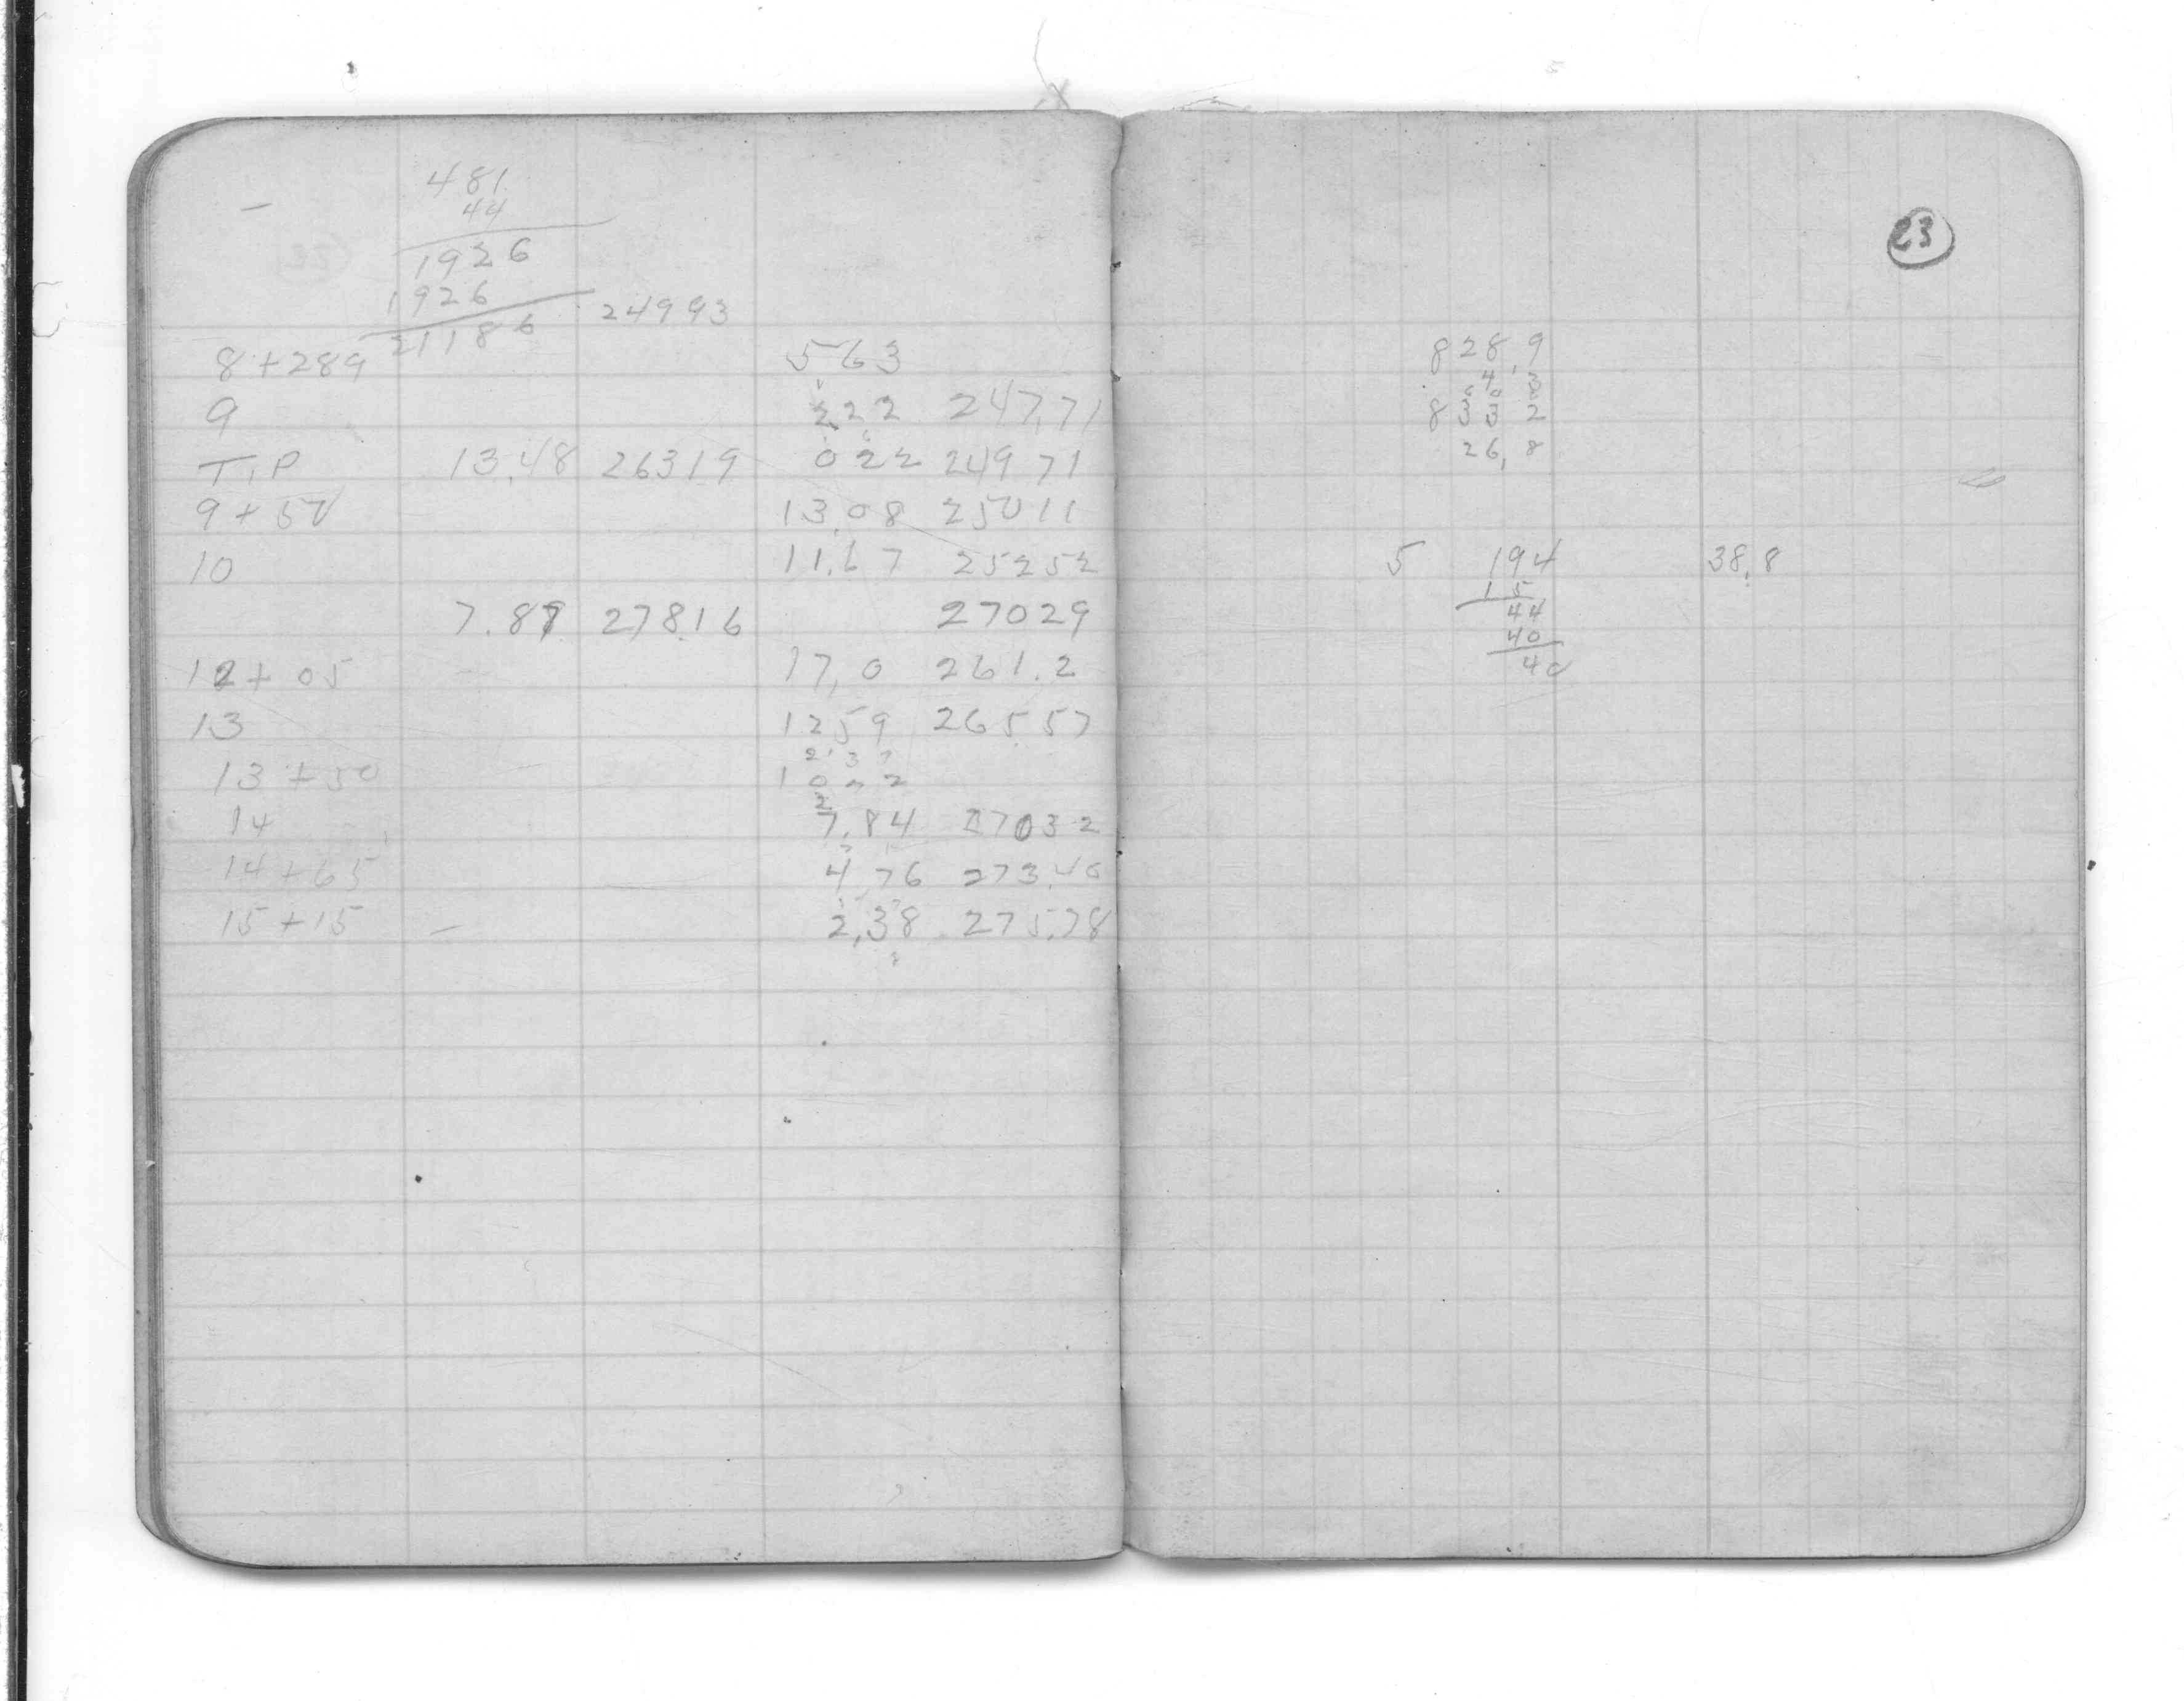 481
44
1926
1926
21186 24993
8+289 563
9 222 247,71
T.P 13.48 26319 022 24971
9+50 13.08 25011
10 11.67 25252
7.87 27816 27029
12+05 17,0 261.2
13 1259 26557
13+50
14 7.84 27032
14+65 4.76
15+15 2,38 275.78
23
828,9
4,3
833 2
26,8
5 194 38.8
15
44
40
40